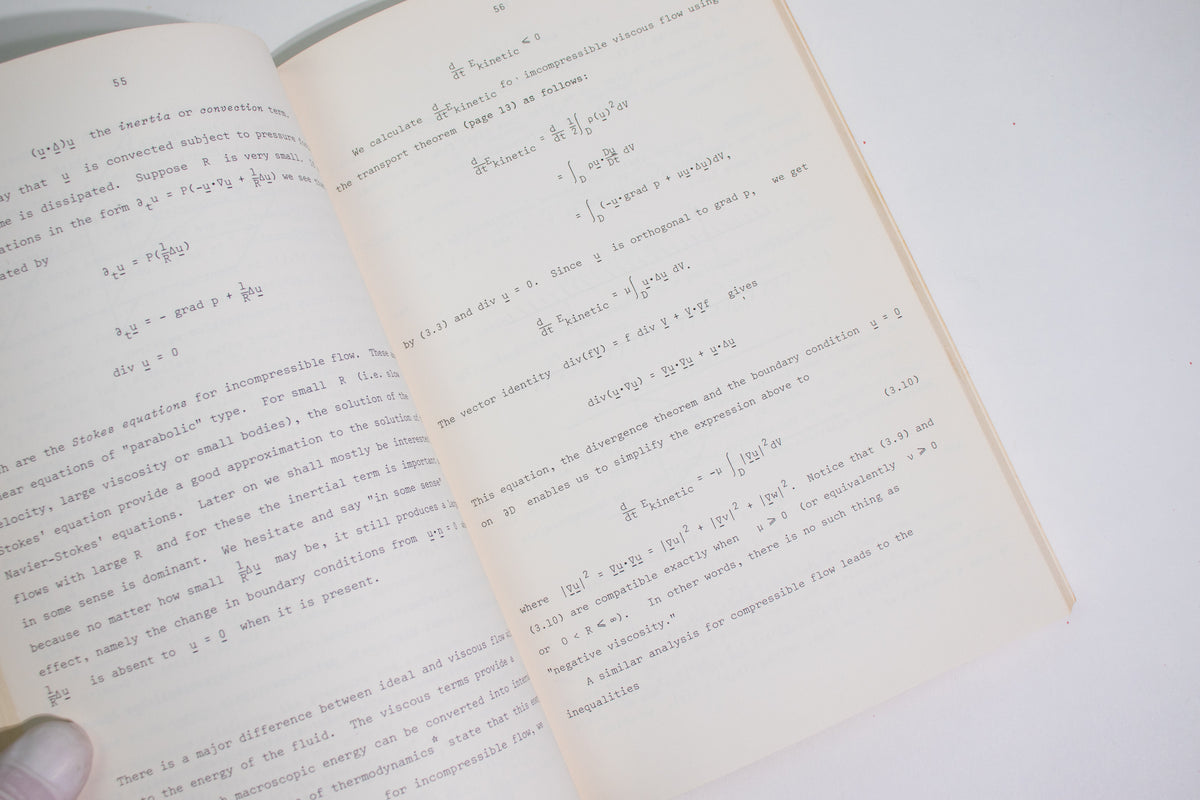 55
(u·Δ)u the inertia or convection term.
that u is convected subject to pressure
me is dissipated. Suppose R is very small.
ations in the form ∂ₜu = P(-u·∇u + 1/R Δu) we see
ated by
∂ₜu = P(1/R Δu)
∂ₜu = - grad p + 1/R Δu
div u = 0
are the Stokes equations for incompressible flow. These
equations of "parabolic" type. For small R (i.e. slow
velocity, large viscosity or small bodies), the solution of the
Stokes' equation provide a good approximation to the solution of
Navier-Stokes' equations. Later on we shall mostly be interested
flows with large R and for these the inertial term is important
in some sense is dominant. We hesitate and say "in some sense"
because no matter how small 1/R Δu may be, it still produces a
effect, namely the change in boundary conditions from u·n = 0
1/R Δu is absent to u = 0 when it is present.
There is a major difference between ideal and viscous flow
to the energy of the fluid. The viscous terms provide a
macroscopic energy can be converted into
of thermodynamics* state that this
for incompressible flow,
56
d/dt E_kinetic ≤ 0
We calculate d/dt E_kinetic fo· imcompressible viscous flow using
the transport theorem (page 13) as follows:
d/dt E_kinetic = d/dt 1/2 ∫_D ρ(u)² dV
= ∫_D ρu·Du/Dt dV
= ∫_D (-u·grad p + μu·Δu)dV,
by (3.3) and div u = 0. Since u is orthogonal to grad p, we get
d/dt E_kinetic = μ∫_D u·Δu dV.
The vector identity div(fV) = f div V + V·∇f gives
div(u·∇u) = ∇u·∇u + u·Δu
This equation, the divergence theorem and the boundary condition u = 0
on ∂D enables us to simplify the expression above to
d/dt E_kinetic = -μ ∫_D |∇u|² dV (3.10)
where |∇u|² = ∇u·∇u = |∇u|² + |∇v|² + |∇w|². Notice that (3.9) and
(3.10) are compatible exactly when μ ≥ 0 (or equivalently ν ≥ 0
or 0 < R ≤ ∞). In other words, there is no such thing as
"negative viscosity."
A similar analysis for compressible flow leads to the
inequalities